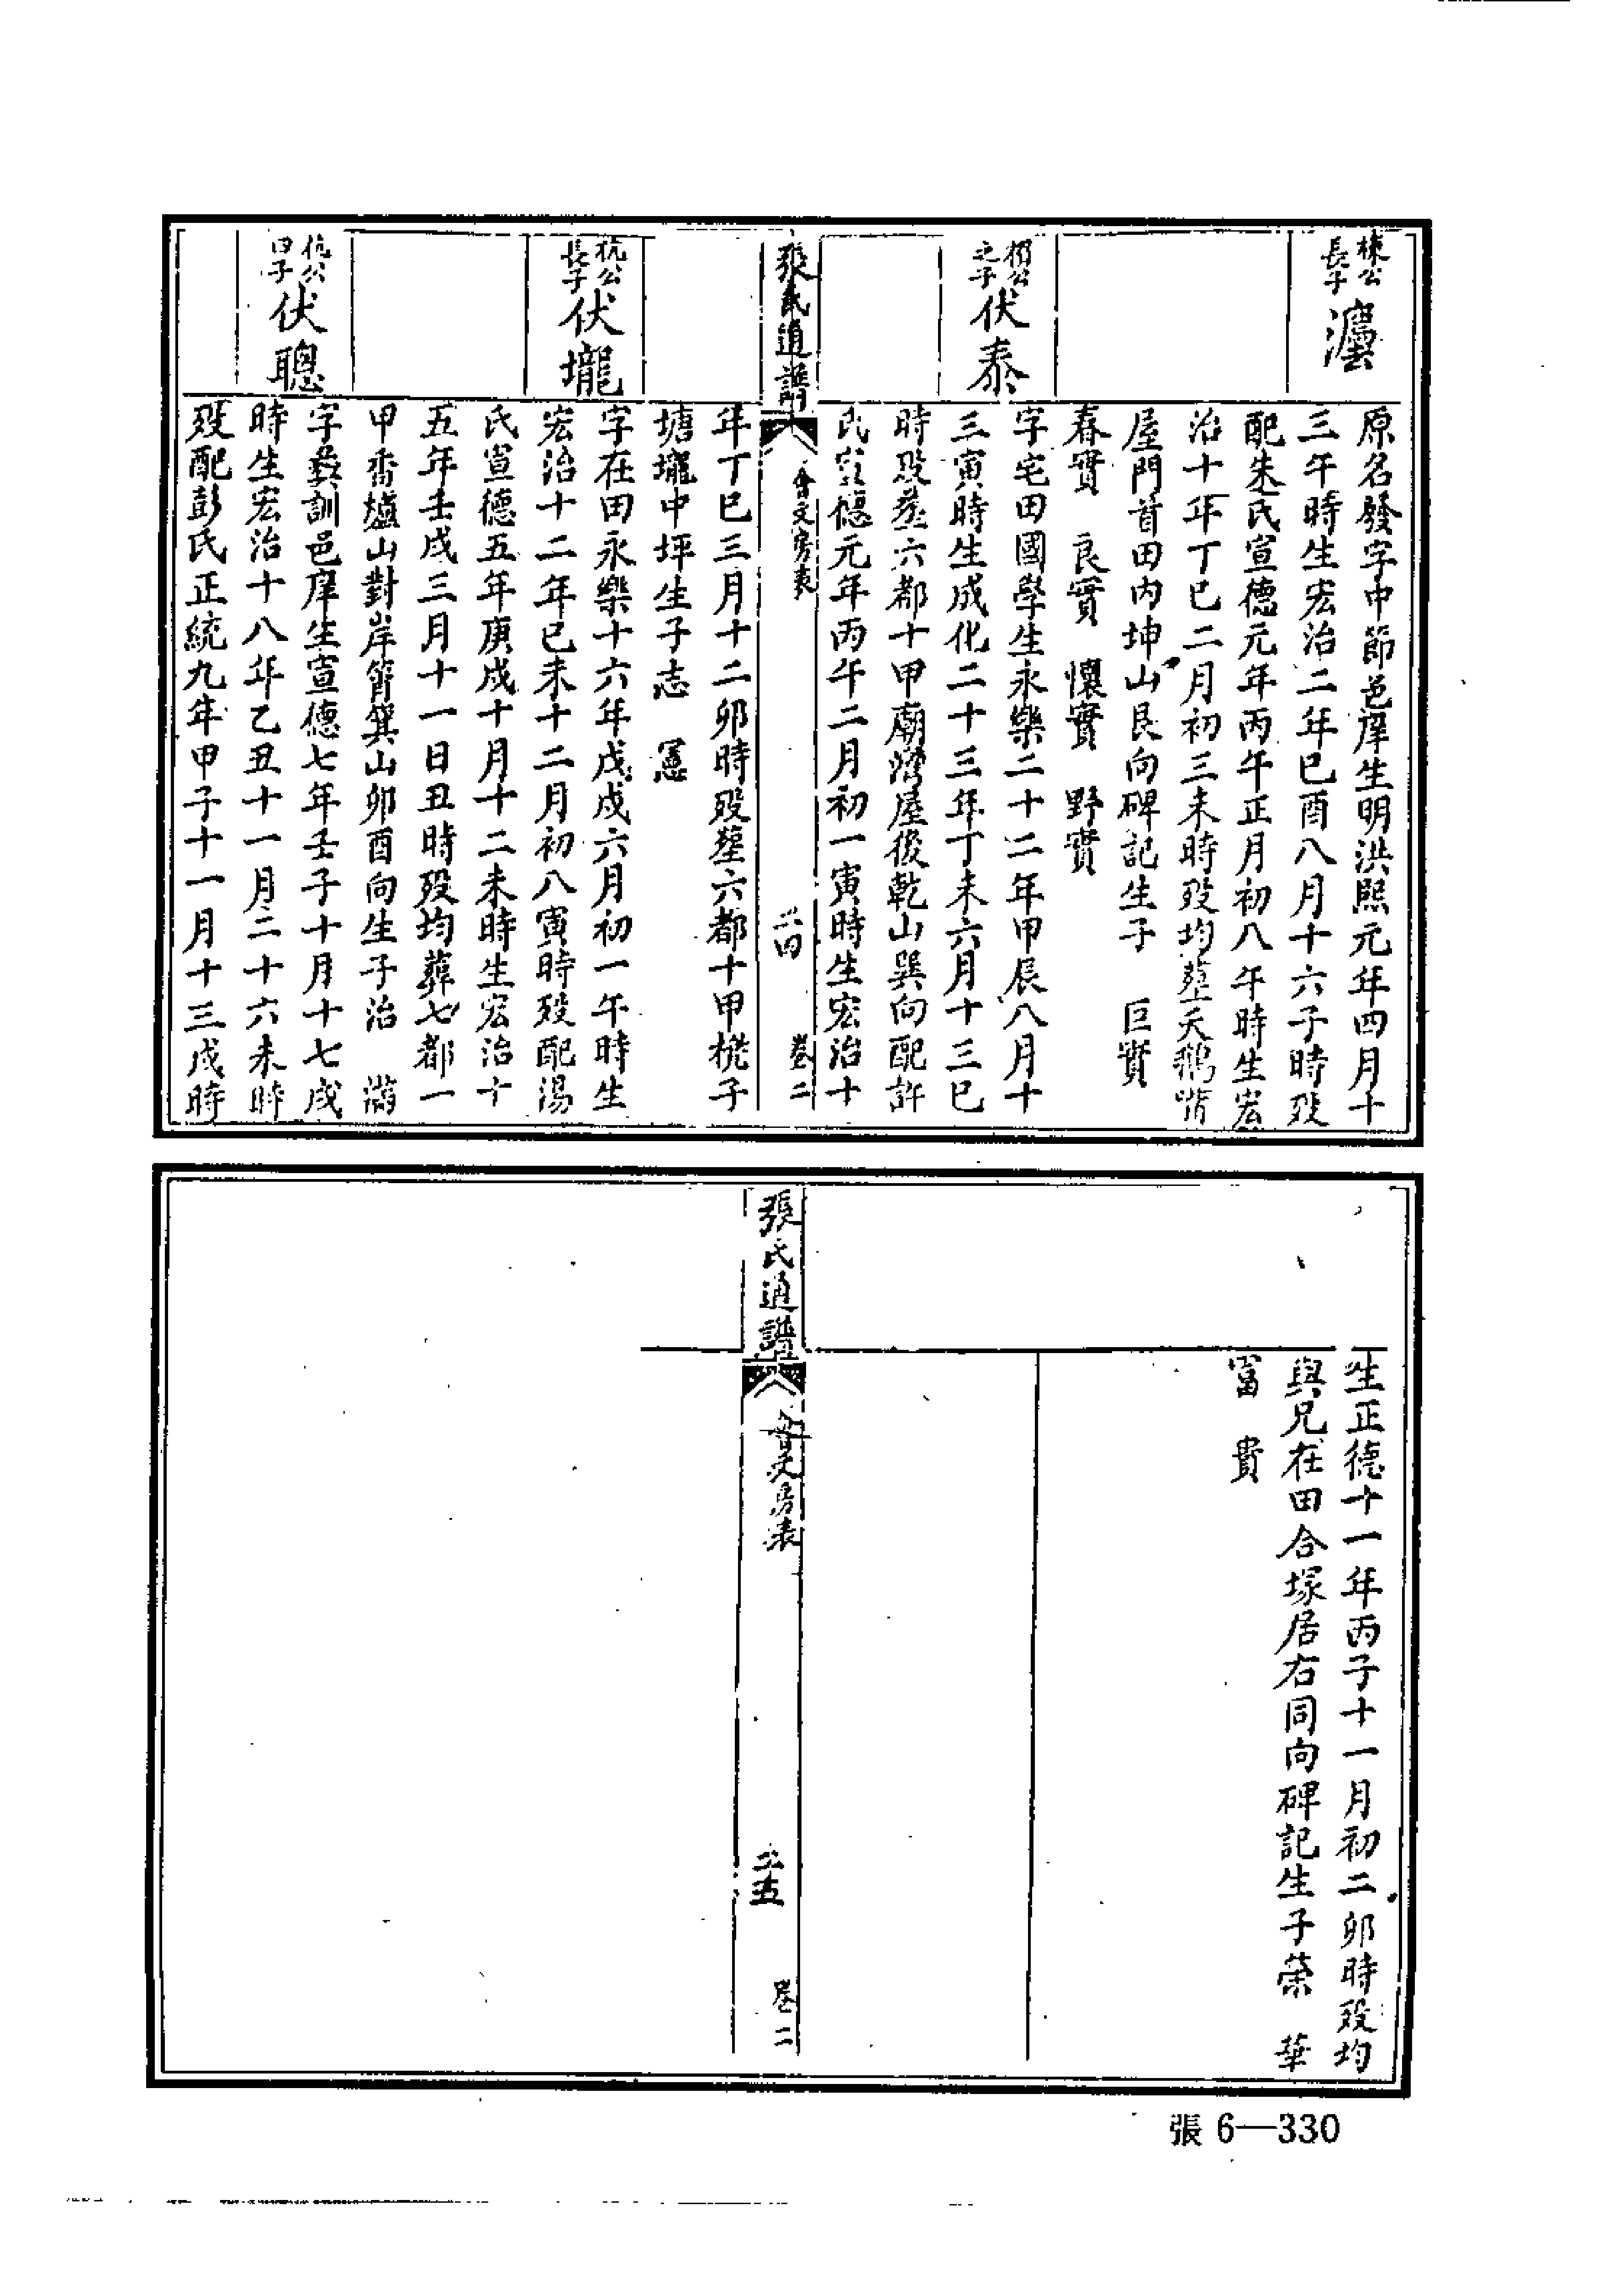 長子
原名發字中節邑庠生明洪熙元年四月十
三午時生宏治二年己酉八月十六子時歿
配朱氏宣德元年丙午正月初八午時生宏
治十年丁巳二月初三未時歿均塟天鵝
屋門首田內坤山艮向碑記生子 巨實
春實 良實 懷實 野實
之子
伏泰
字宅田國學生永樂二十二年甲辰八月十
三寅時生成化二十三年丁未六月十三巳
時歿塟六都十甲廟灣屋後乾山巽向配許
氏宣德元年丙午二月初一寅時生宏治十
張氏通譜
會文房表
卷二
年丁巳三月十二卯時歿塟六都十甲桄子
塘壠中坪生子志 憲
杭公
長子
伏壠
字在田永樂十六年戊戌六月初一午時生
宏治十二年己未十二月初八寅時歿配湯
氏宣德五年庚戌十月十二未時生宏治十
五年壬戌三月十一日丑時歿均葬七都一
甲香爐山對岸筲箕山卯酉向生子治 滿
杭公
伏聰
字彝訓邑庠生宣德七年壬子十月十七戌
時生宏治十八年乙丑十一月二十六未時
歿配彭氏正統九年甲子十一月十三戌時
生正德十一年丙子十一月初二卯時歿均
與兄在田合塚居右同向碑記生子榮 華
富 貴
張氏通譜
會文房表
卷二
張 6—330